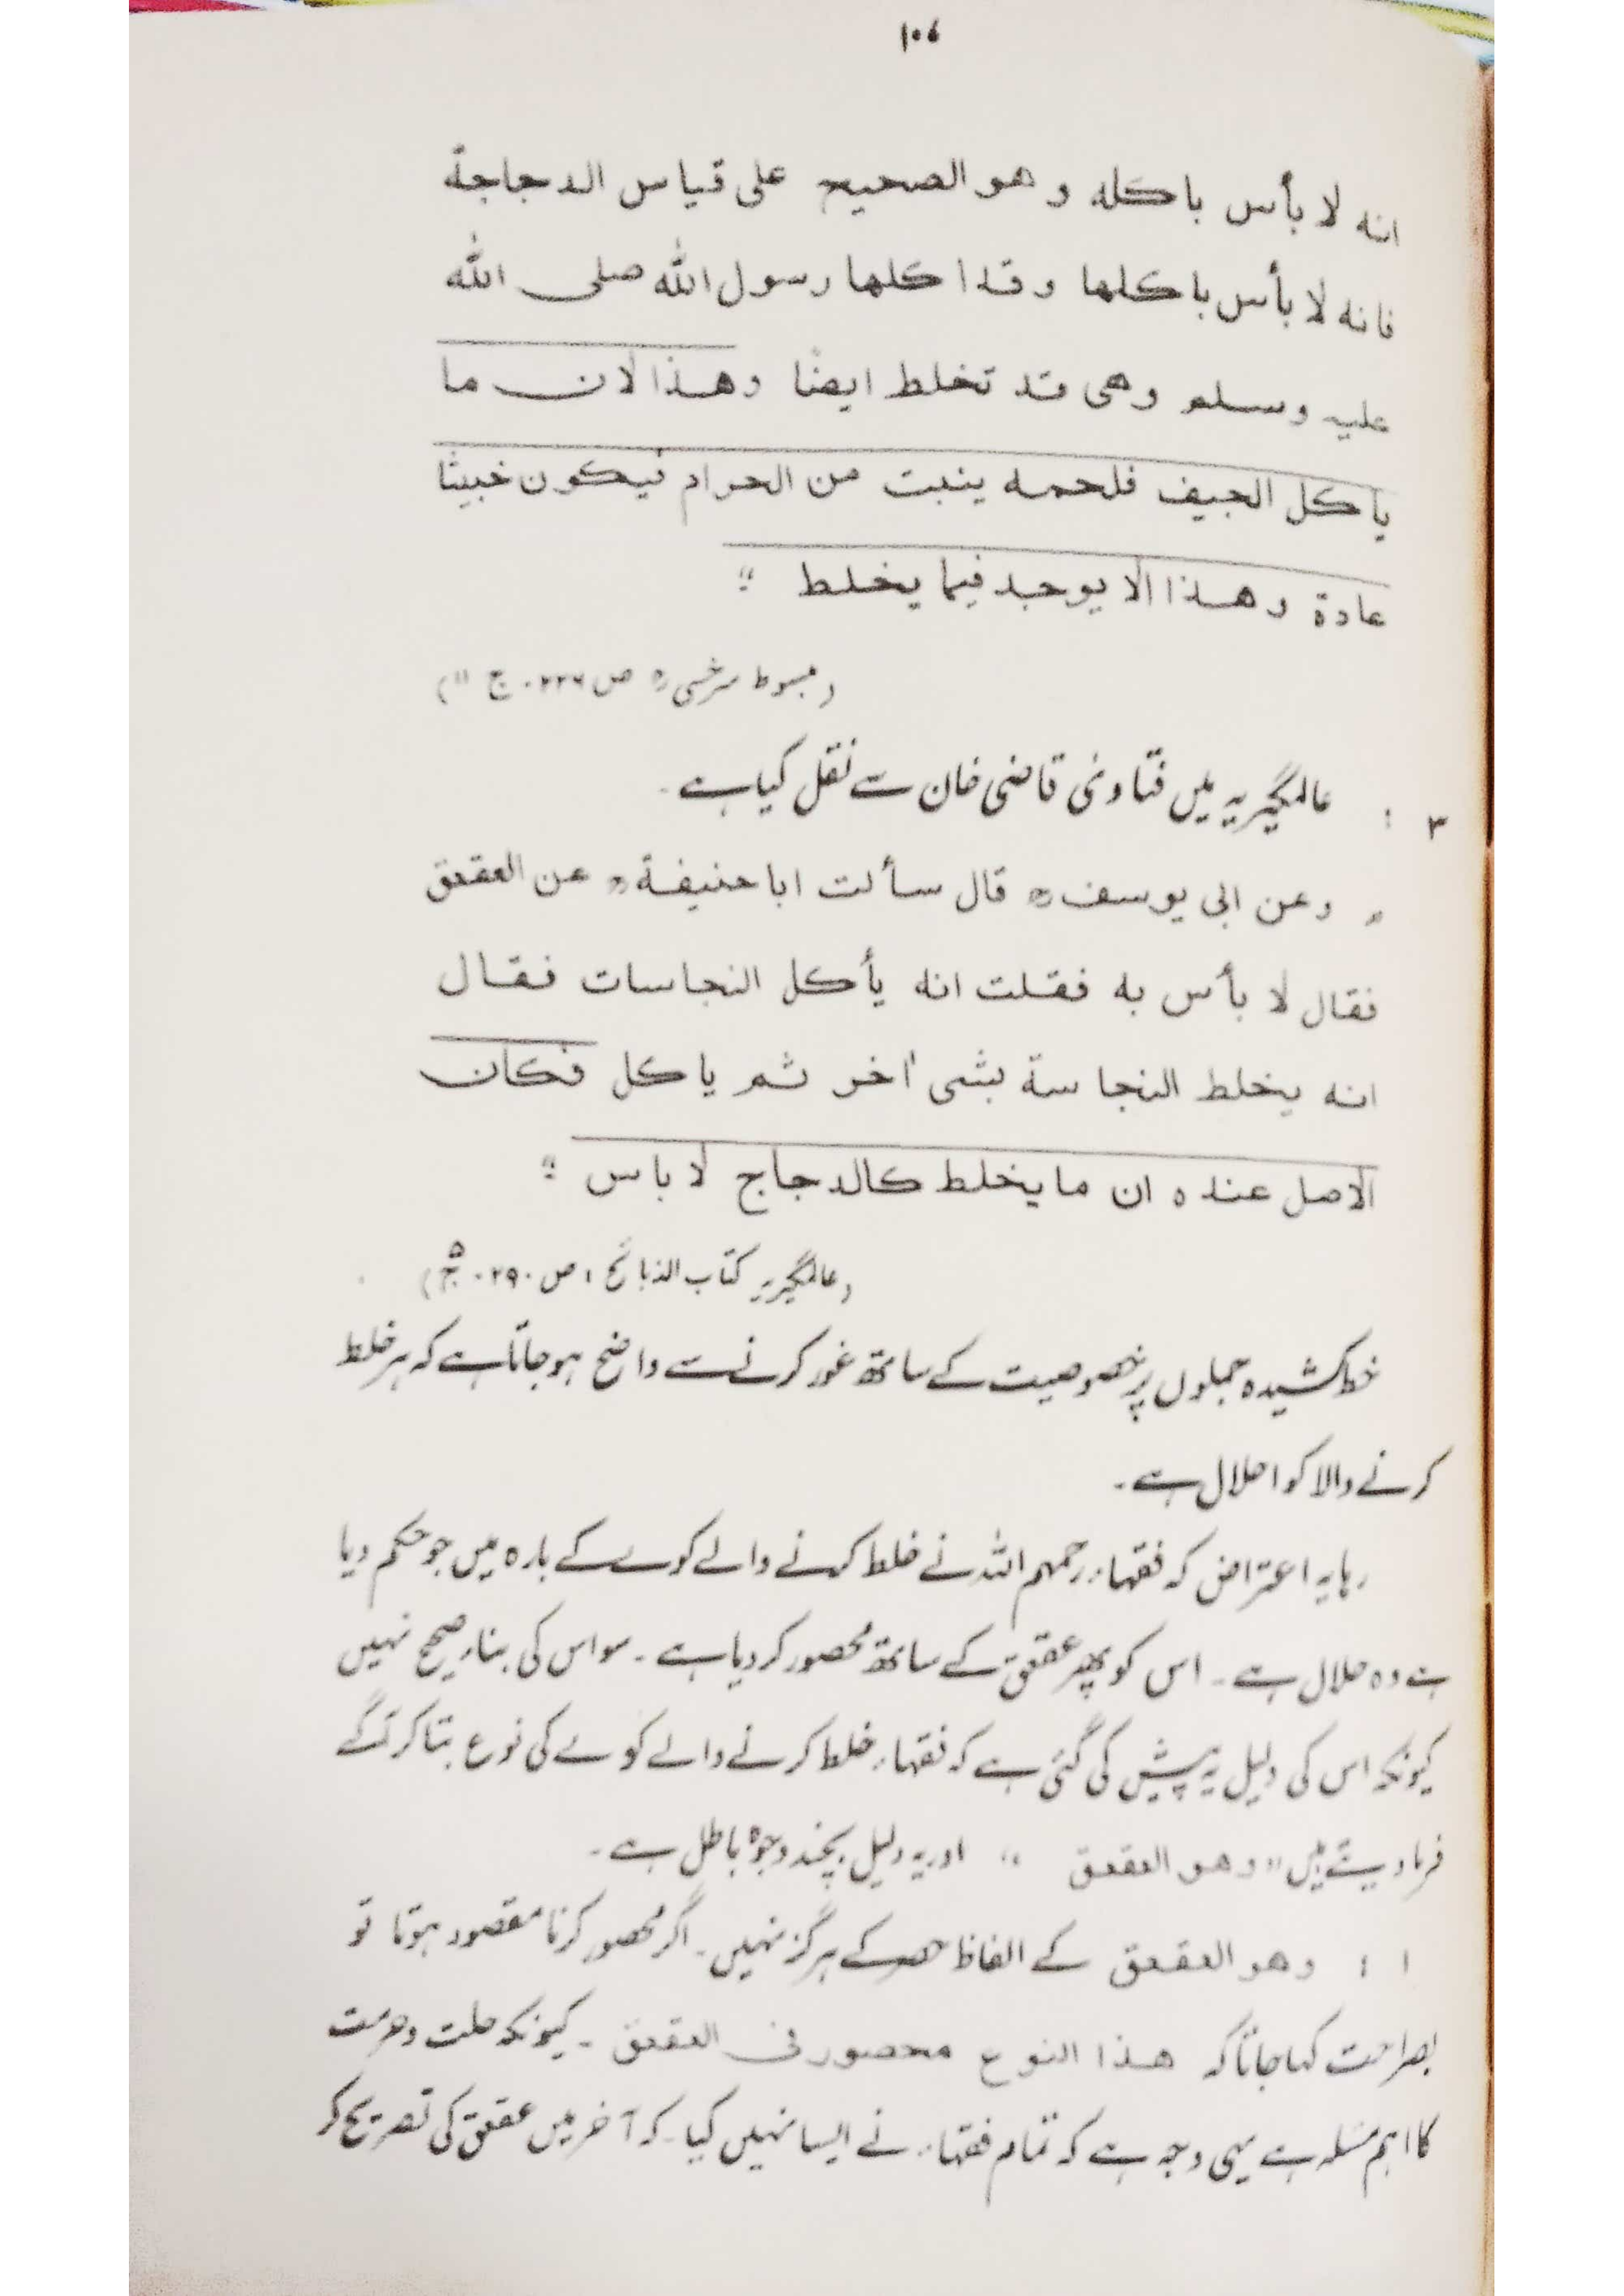 ۱۰۶
انه لا بأس باكله وهو الصحيح على قياس الدجاجة
فانه لا بأس باكلها وقد اكلها رسول الله صلى الله
عليه وسلم وهى قد تخلط ايضًا وهذا لان ما
ياكل الجيف فلحمه ينبت من الحرام فيكون خبيثا
عادة وهذا لا يوجد فيما يخلط "
(مبسوط سرخسیؒ ص ۲۲۶. ج ۱۱)
۳ : عالمگیریہ میں فتاوٰی قاضی خان سے نقل کیا ہے۔
" وعن ابى يوسفؒ قال سألت ابا حنيفةؒ عن العقعق
فقال لا بأس به فقلت انه يأكل النجاسات فقال
انه يخلط النجاسة بشىء اٰخر ثم ياكل فكان
الاصل عنده ان ما يخلط كالدجاج لا باس "
(عالمگیریہ کتاب الذبائح، ص ۲۹۰. ج ۵)
خط کشیدہ جملوں پر خصوصیت کے ساتھ غور کرنے سے واضح ہو جاتا ہے کہ ہر خلط
کرنے والا کوا حلال ہے۔
رہا یہ اعتراض کہ فقہاء رحمہم اللہ نے خلط کرنے والے کوے کے بارہ میں جو حکم دیا
ہے وہ حلال ہے۔ اس کو پھر عقعق کے ساتھ محصور کر دیا ہے۔ سو اس کی بناء صحیح نہیں
کیونکہ اس کی دلیل یہ پیش کی گئی ہے کہ فقہاء خلط کرنے والے کوے کی نوع بتا کر آگے
فرما دیتے ہیں " وهو العقعق " اور یہ دلیل بچند وجوہ باطل ہے۔
۱ : وهو العقعق کے الفاظ حصر کے ہرگز نہیں۔ اگر محصور کرنا مقصود ہوتا تو
بصراحت کہا جاتا کہ هذا النوع محصور فى العقعق۔ کیونکہ حلت و حرمت
کا اہم مسئلہ ہے یہی وجہ ہے کہ تمام فقہاء نے ایسا نہیں کیا۔ کہ آخر میں عقعق کی تصریح کر